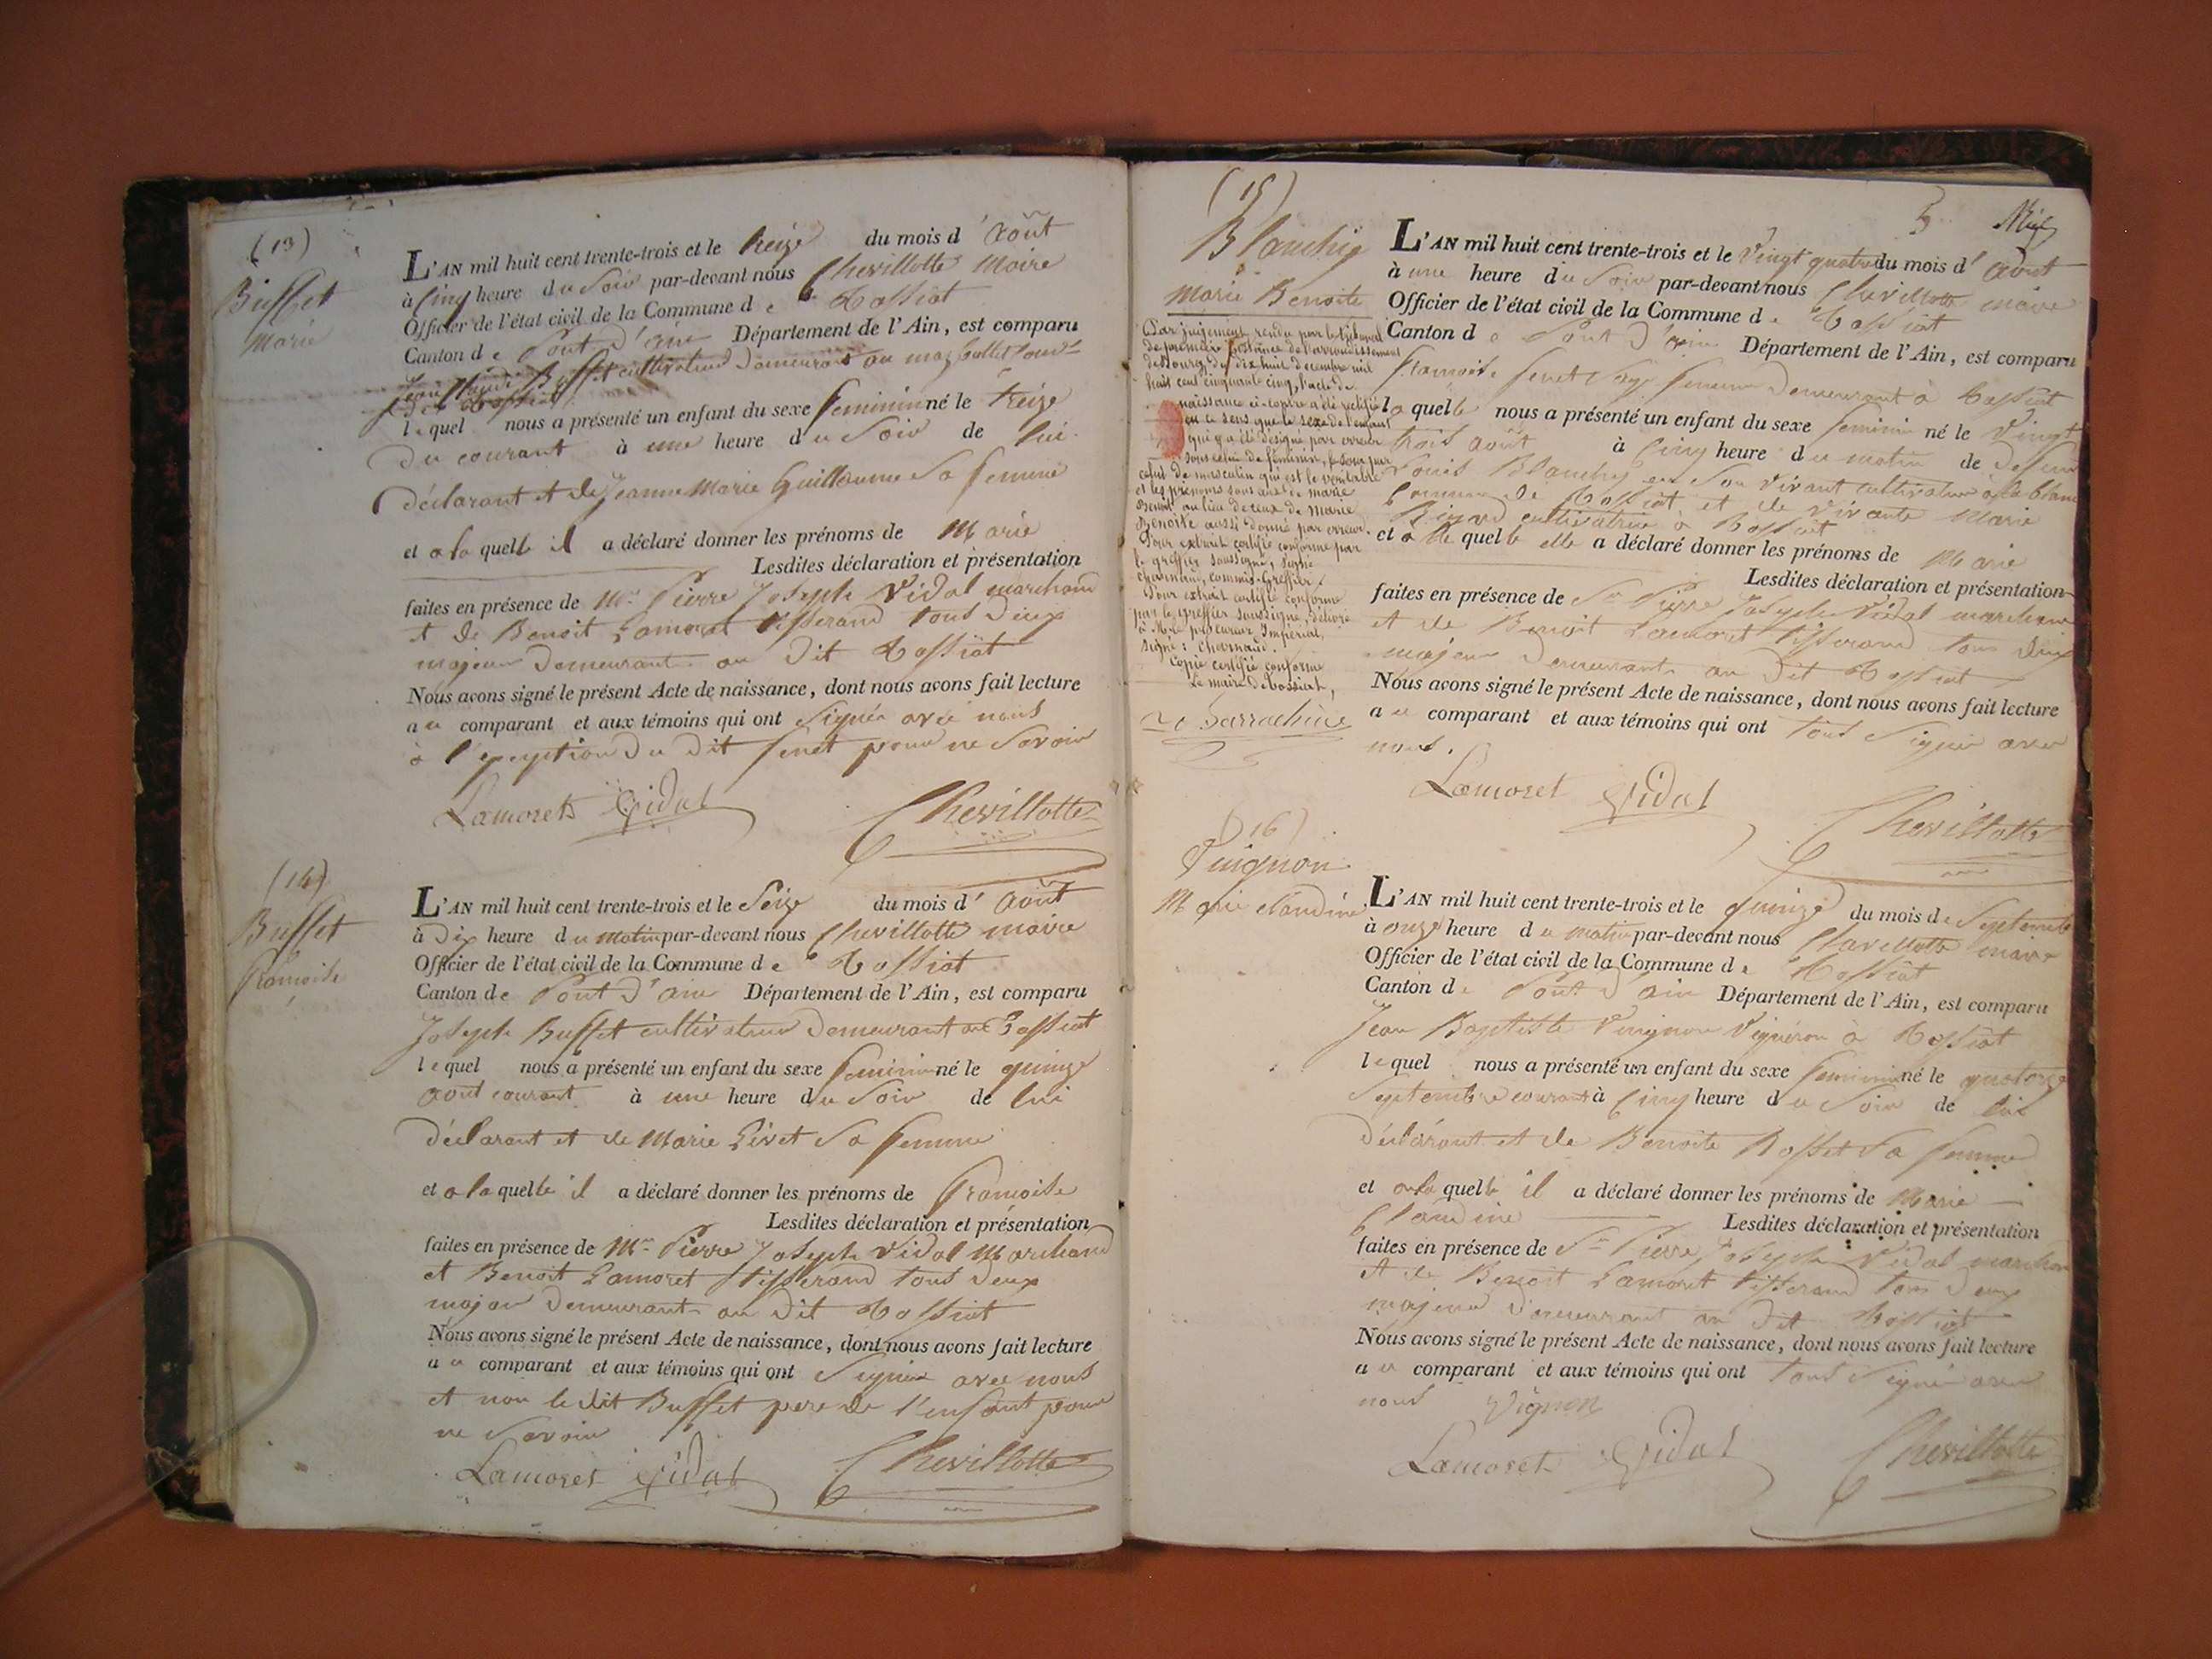 (13)
Buffet
Marie
L'AN mil huit cent trente-trois et le treize du mois d' Août
à Cinq heure du Soir par-devant nous Chevillotte Maire
Officier de l'état civil de la Commune de Tossiat
Canton de Pont d'ain Département de l'Ain, est comparu
Jean Buffet cultivateur demeurant au
dit Tossiat
lequel nous a présenté un enfant du sexe feminin né le treize
du courant à une heure du Soir de lui
déclarant et de Jeanne Marie Guillaume Sa femme
et a laquelle il a déclaré donner les prénoms de Marie
Lesdites déclaration et présentation
faites en présence de Mr Pierre Joseph Vidal marchand
et de Benoit Lamoret tisserand tous deux
majeur demeurant au dit Tossiat
Nous avons signé le présent Acte de naissance, dont nous avons fait lecture
au comparant et aux témoins qui ont Signés avec nous
à l'exception du dit pour ne Savoir
Lamoret Vidal Chevillotte
(14)
Buffet
francoise
L'AN mil huit cent trente-trois et le Seize du mois d' Août
à Dix heure du matin par-devant nous Chevillotte maire
Officier de l'état civil de la Commune de Tossiat
Canton de Pont d'ain Département de l'Ain, est comparu
Joseph Buffet cultivateur demeurant au Tossiat
lequel nous a présenté un enfant du sexe feminin né le quinze
aout courant à une heure du Soir de lui
déclarant et de Marie Livet Sa femme
et a laquelle il a déclaré donner les prénoms de francoise
Lesdites déclaration et présentation
faites en présence de Mr Pierre Joseph Vidal Marchand
et Benoit Lamoret tisserand tous deux
majeur demeurant au dit Tossiat
Nous avons signé le présent Acte de naissance, dont nous avons fait lecture
au comparant et aux témoins qui ont Signés avec nous
et non le dit Buffet pere de l'enfant pour
ne Savoir
Lamoret Vidal Chevillotte
5
(15)
Blanchy
Marie Benoite
Par jugement rendu par le tribunal
de première instance de l'arrondissement
de Bourg, du dix huit decembre mil
huit cent cinquante cinq, l'acte de
naissance ci-contre a été rectifié
en ce sens que le sexe de l'enfant
qui y a été designé par erreur
sous celui de féminin, le soit par
celui de masculin qui est le véritable
et les prénoms sous ceux de marie
Benoit au lieu de ceux de Marie
Benoite aussi donné par erreur.
Pour extrait certifié conforme par
le greffier soussigné, signé
Chevrinaud, commis-Greffier.
Pour extrait certifié conforme
par le greffier soussigné, délivré
à Mr le procureur Impérial,
signé: Chevrinaud.
Copie certifié conforme
Le maire de Tossiat,
L'AN mil huit cent trente-trois et le Vingt quatre du mois d' Aout
à une heure du Soir par-devant nous Chevillotte maire
Officier de l'état civil de la Commune de Tossiat
Canton de Pont d'ain Département de l'Ain, est comparu
francoise femme demeurant à Tossiat
laquelle nous a présenté un enfant du sexe feminin né le Vingt
trois août à Cinq heure du matin de defunt
Louis Blanchy en Son Vivant cultivateur
Commune de Tossiat et de vivante Marie
cultivatrice à Tossiat
et a laquelle elle a déclaré donner les prénoms de Marie
Lesdites déclaration et présentation
faites en présence de Sr Pierre Joseph Vidal marchand
et de Benoit Lamoret tisserand tous deux
majeur demeurant au Dit Tossiat
Nous avons signé le présent Acte de naissance, dont nous avons fait lecture
au comparant et aux témoins qui ont tous Signés avec
nous.
Lamoret Vidal
Chevillotte
(16)
Vuignon
Marie claudine
L'AN mil huit cent trente-trois et le quinze du mois de Septembre
à onze heure du matin par-devant nous Chevillotte maire
Officier de l'état civil de la Commune de Tossiat
Canton de Pont d'ain Département de l'Ain, est comparu
Jean Baptiste Vuignon Vigneron à Tossiat
lequel nous a présenté un enfant du sexe feminin né le quatorze
Septembre courant à Cinq heure du Soir de lui
déclarant et de Benoite Rosset Sa femme
et a laquelle il a déclaré donner les prénoms de Marie
Claudine Lesdites déclaration et présentation
faites en présence de Sr Pierre Joseph Vidal marchand
et de Benoit Lamoret tisserand tous deux
majeur demeurant au dit Tossiat
Nous avons signé le présent Acte de naissance, dont nous avons fait lecture
au comparant et aux témoins qui ont tous Signés avec
nous Vignon
Lamoret Vidal Chevillotte